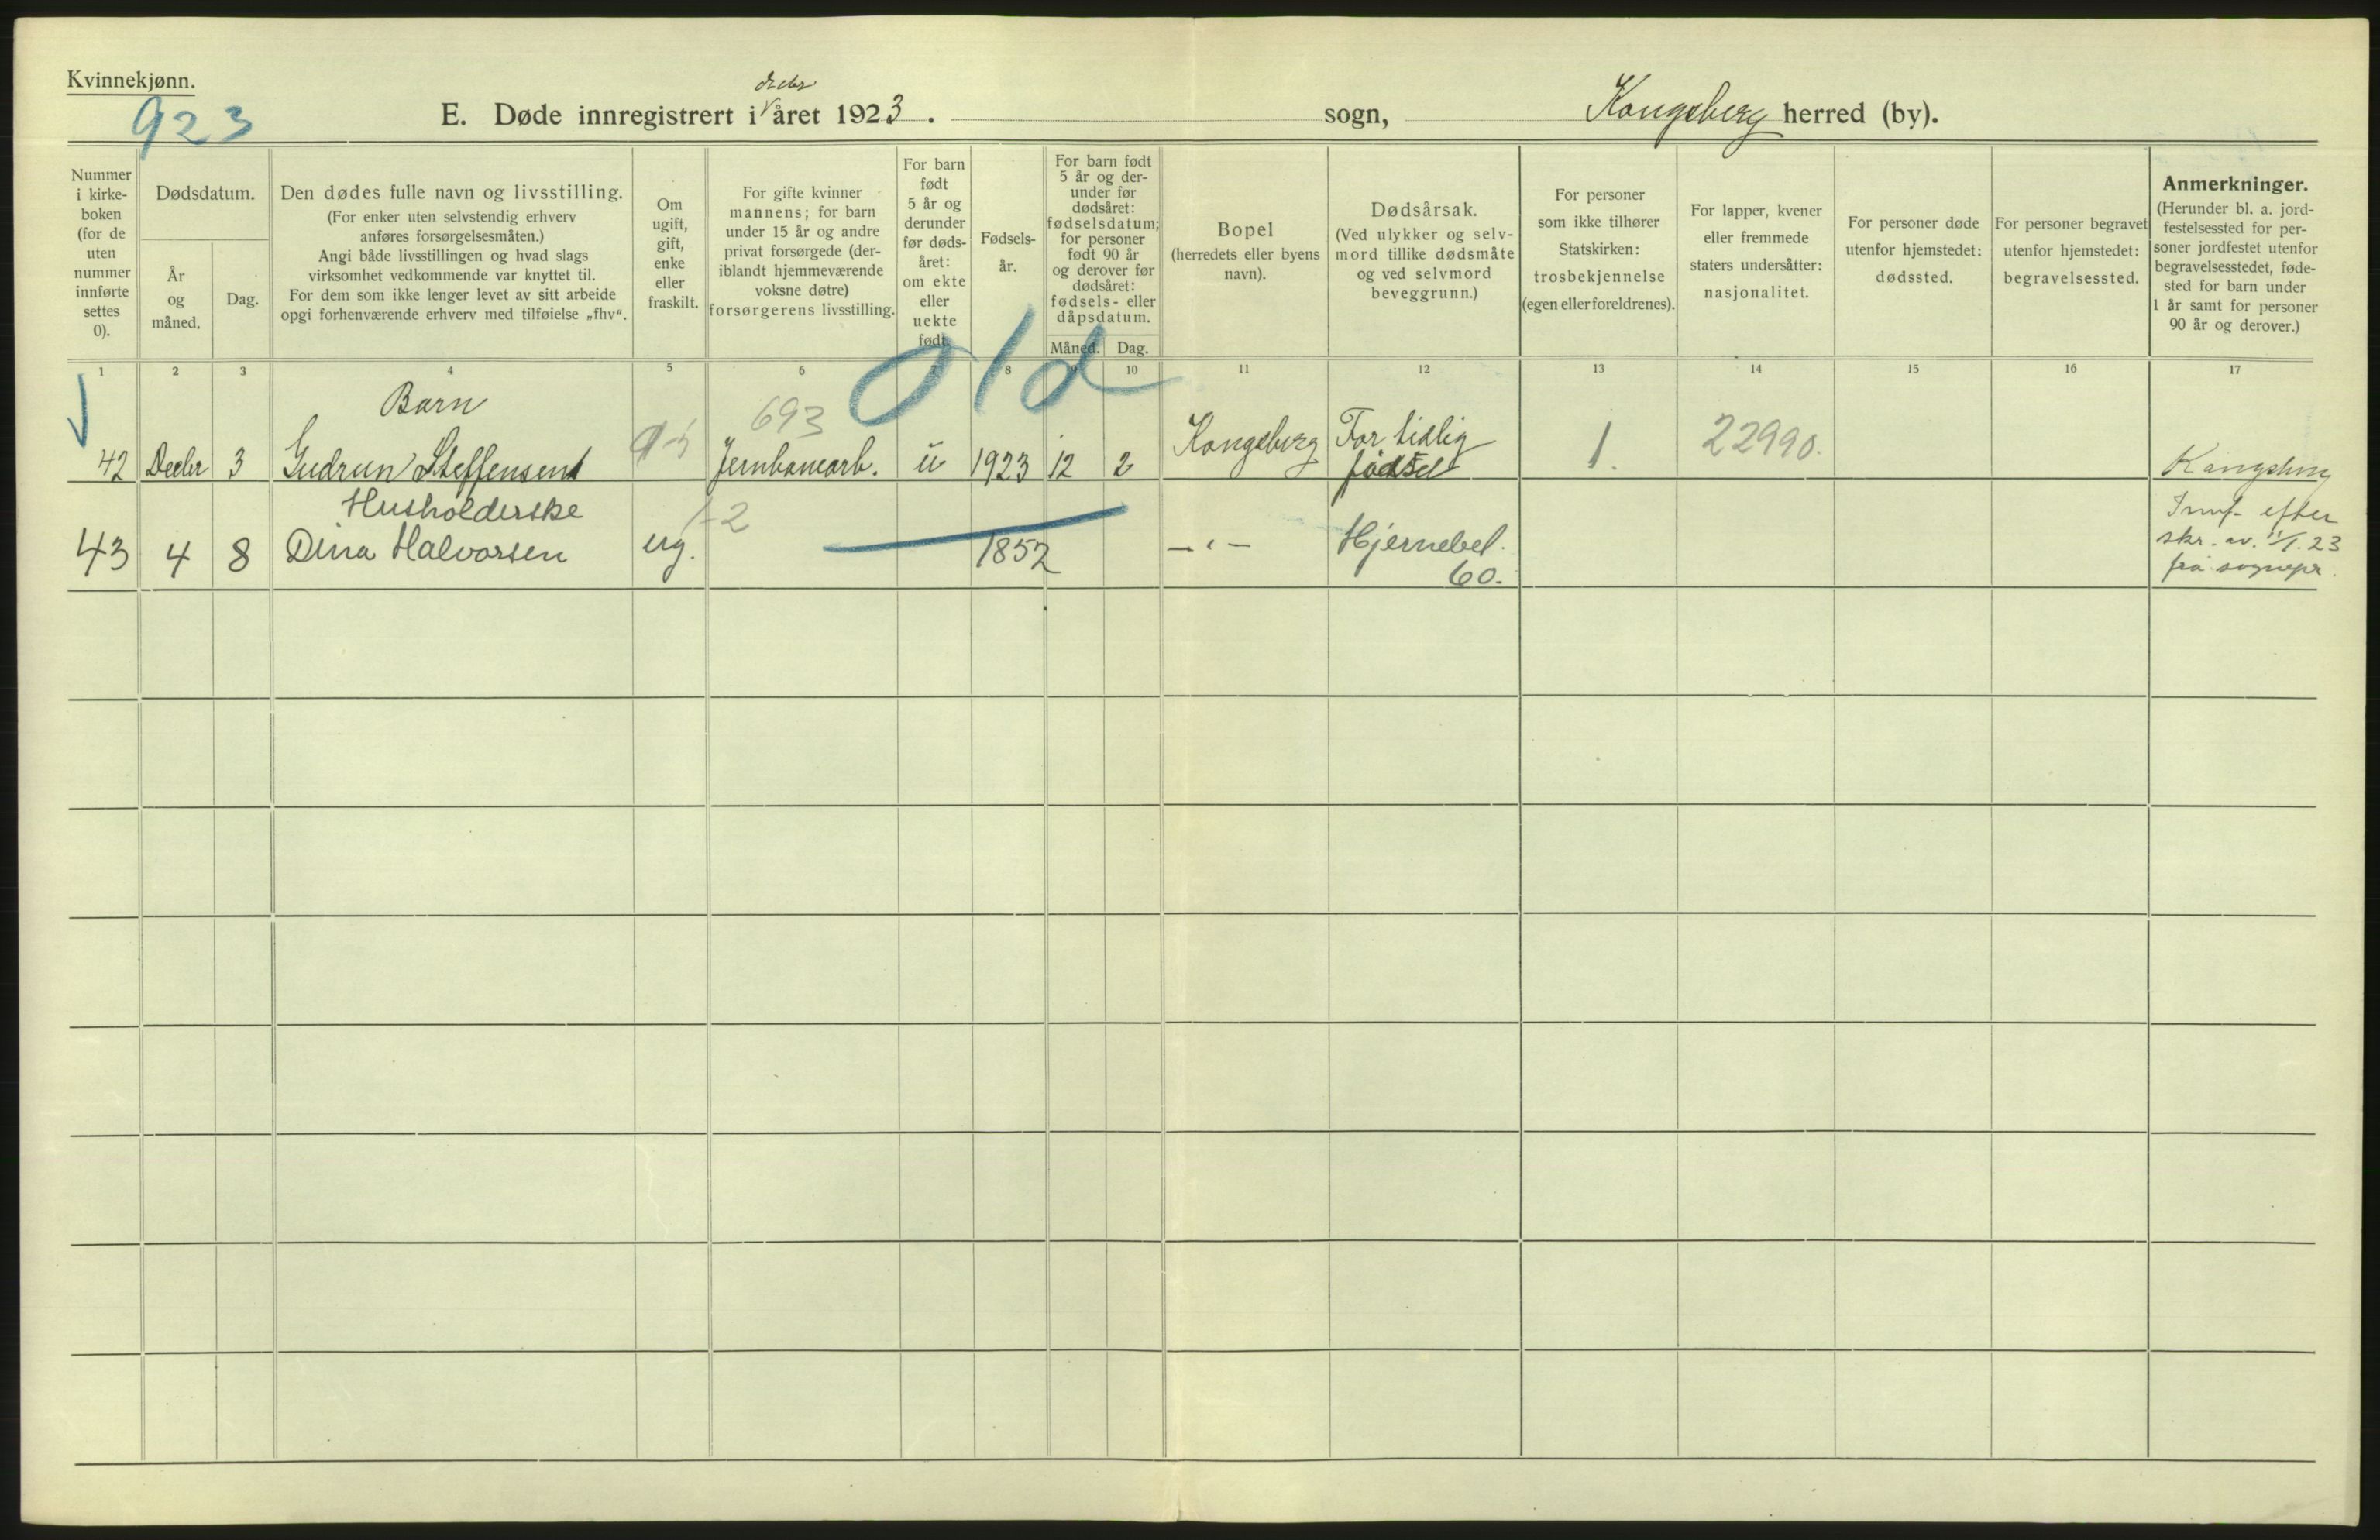 Kvinnekjønn.
923
decbr
E. Døde innregistrert i året 1923. sogn, Kongsberg herred (by).
Nummer
i kirke-
boken
(for de
uten
nummer
innførte
settes
0).
Dødsdatum.
År
og
måned.
Dag.
Den dødes fulle navn og livsstilling.
(For enker uten selvstendig erhverv
anføres forsørgelsesmåten.)
Angi både livsstillingen og hvad slags
virksomhet vedkommende var knyttet til.
For dem som ikke lenger levet av sitt arbeide
opgi forhenværende erhverv med tilføielse „fhv“.
Om
ugift,
gift,
enke
eller
fraskilt.
For gifte kvinner
mannens; for barn
under 15 år og andre
privat forsørgede (der-
iblandt hjemmeværende
voksne døtre)
forsørgerens livsstilling.
For barn
født
5 år og
derunder
før døds-
året:
om ekte
eller
uekte
født.
Fødsels-
år.
For barn født
5 år og der-
under før
dødsåret:
fødselsdatum;
for personer
født 90 år
og derover før
dødsåret:
fødsels- eller
dåpsdatum.
Måned. Dag.
Bopel
(herredets eller byens
navn).
Dødsårsak.
(Ved ulykker og selv-
mord tillike dødsmåte
og ved selvmord
beveggrunn.)
For personer
som ikke tilhører
Statskirken:
trosbekjennelse
(egen eller foreldrenes).
For lapper, kvener
eller fremmede
staters undersåtter:
nasjonalitet.
For personer døde
utenfor hjemstedet:
dødssted.
For personer begravet
utenfor hjemstedet:
begravelsessted.
Anmerkninger.
(Herunder bl. a. jord-
festelsessted for per-
soner jordfestet utenfor
begravelsesstedet, føde-
sted for barn under
1 år samt for personer
90 år og derover.)
1 2 3 4 5 6 7 8 9 10 11 12 13 14 15 16 17
old
Barn
693
42 Decbr 3 Gudrun Steffensen Jernbanearb. u 1923 12 2 Kongsberg For tidlig
fødsel
1. 22990. Kongsberg
Husholderske
1-2
43 4 8 Dina Halvorsen ug. 1852 — " — Hjernebel.
60.
Innf. efter
skr. av. 1/1. 23
fra sognepr.